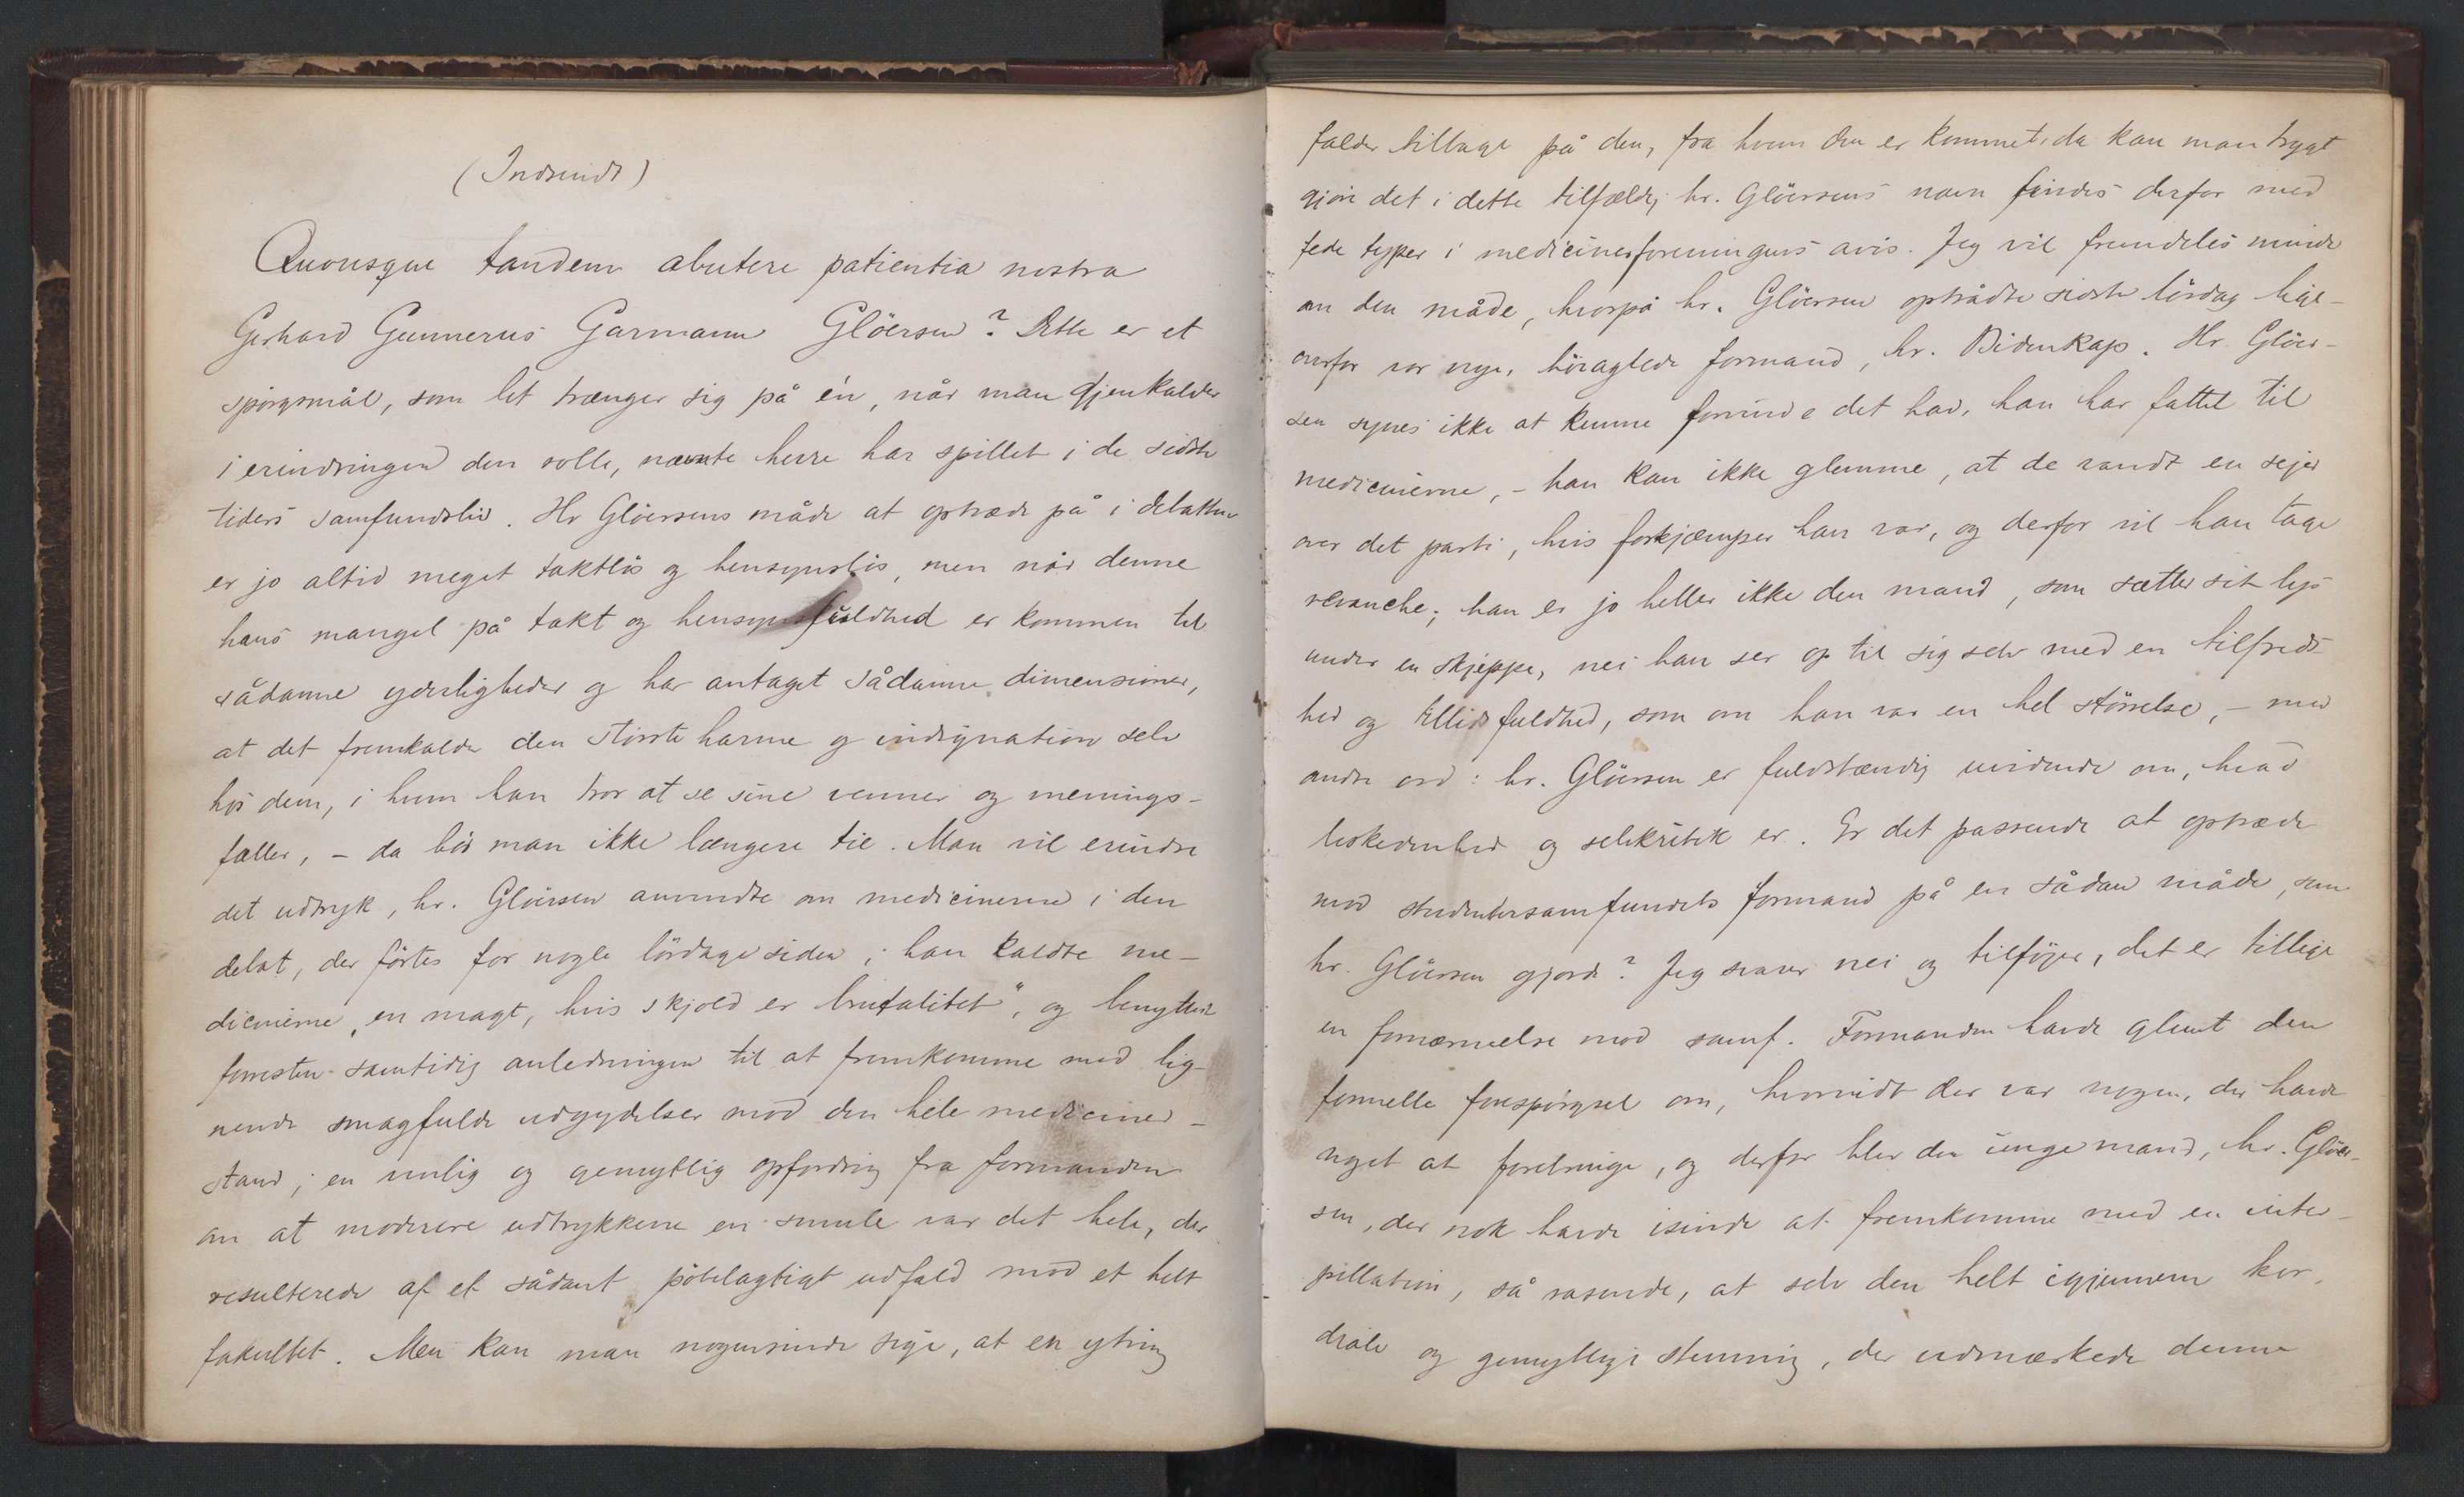 (Indsendt)
Quousque tandem abutere patientia nostra
Gerhard Gunnerus Garmann Glöersen? Dette er et
spörgsmål, som let trænger sig på én, når man gjenkalder
i erindringen den rolle, nævnte herre har spillet i de sidste
tiders samfundsliv. Hr Glöersens måde at optræde på i debatten
er jo altid meget taktlös og hensynslös, men når denne
hans mangel på takt og hensynsfuldhed er kommen til
sådanne yderligheder og har antaget sådanne dimensioner,
at det fremkalder den störste harme og indignation selv
hos dem, i hvem han tror at se sine venner og menings-
fæller, – da bör man ikke længere tie. Man vil erindre
det udtryk, hr. Glöersen anvendte om medicinerne i den
debat, der förtes for nogle lördage siden; han kaldte me-
dicinerne „en magt, hvis skjold er brutalitet“, og benyttede
forresten samtidig anledningen til at fremkomme med lig-
nende smagfulde udgydelser mod den hele mediciner-
stand; en venlig og gemytlig opfordring fra formanden
om at moderere udtrykkene en smule var det hele, der
resulterede af et sådant pöbelagtigt udfald mod et helt
fakultet. Men kan man nogensinde sige, at en ytring
falder tilbage på den, fra hvem den er kommet, da kan man trygt
gjöre det i dette tilfælde; hr. Glöersens navn findes derfor med
fede typer i medicinerforeningens avis. Jeg vil fremdeles minde
om den måde, hvorpå hr. Glöersen optrådte sidste lördag lige-
overfor vor nye, höiagtede formand, hr. Bidenkap. Hr. Glöer-
sen synes ikke at kunne forvinde det had, han har fattet til
medicinerne, – han kan ikke glemme, at de vandt en sejer
over det parti, hvis forkjæmper han var, og derfor vil han tage
revanche; han er jo heller ikke den mand, som sætter sit lys
under en skjeppe, nei han ser op til sig selv med en tilfreds-
hed og tillidsfuldhed, som om han var en hel störrelse, – med
andre ord: hr. Glöersen er fuldstændig uvidende om, hvad
beskedenhed og selvkritik er. Er det passende at optræde
mod studentersamfundets formand på en sådan måde, som
hr. Glöersen gjorde? Jeg svarer nei og tilföjer, det er tillige
en fornærmelse mod samf. Formanden havde glemt den
formelle forespörgsel om, hvorvidt der var nogen, der havde
noget at forebringe, og derfor blev den unge mand, hr. Glöer-
sen, der nok havde isinde at fremkomme med en inter-
pellation, så rasende, at selv den helt igjennem kor-
diale og gemyttlige stemning, der udmærkede denne